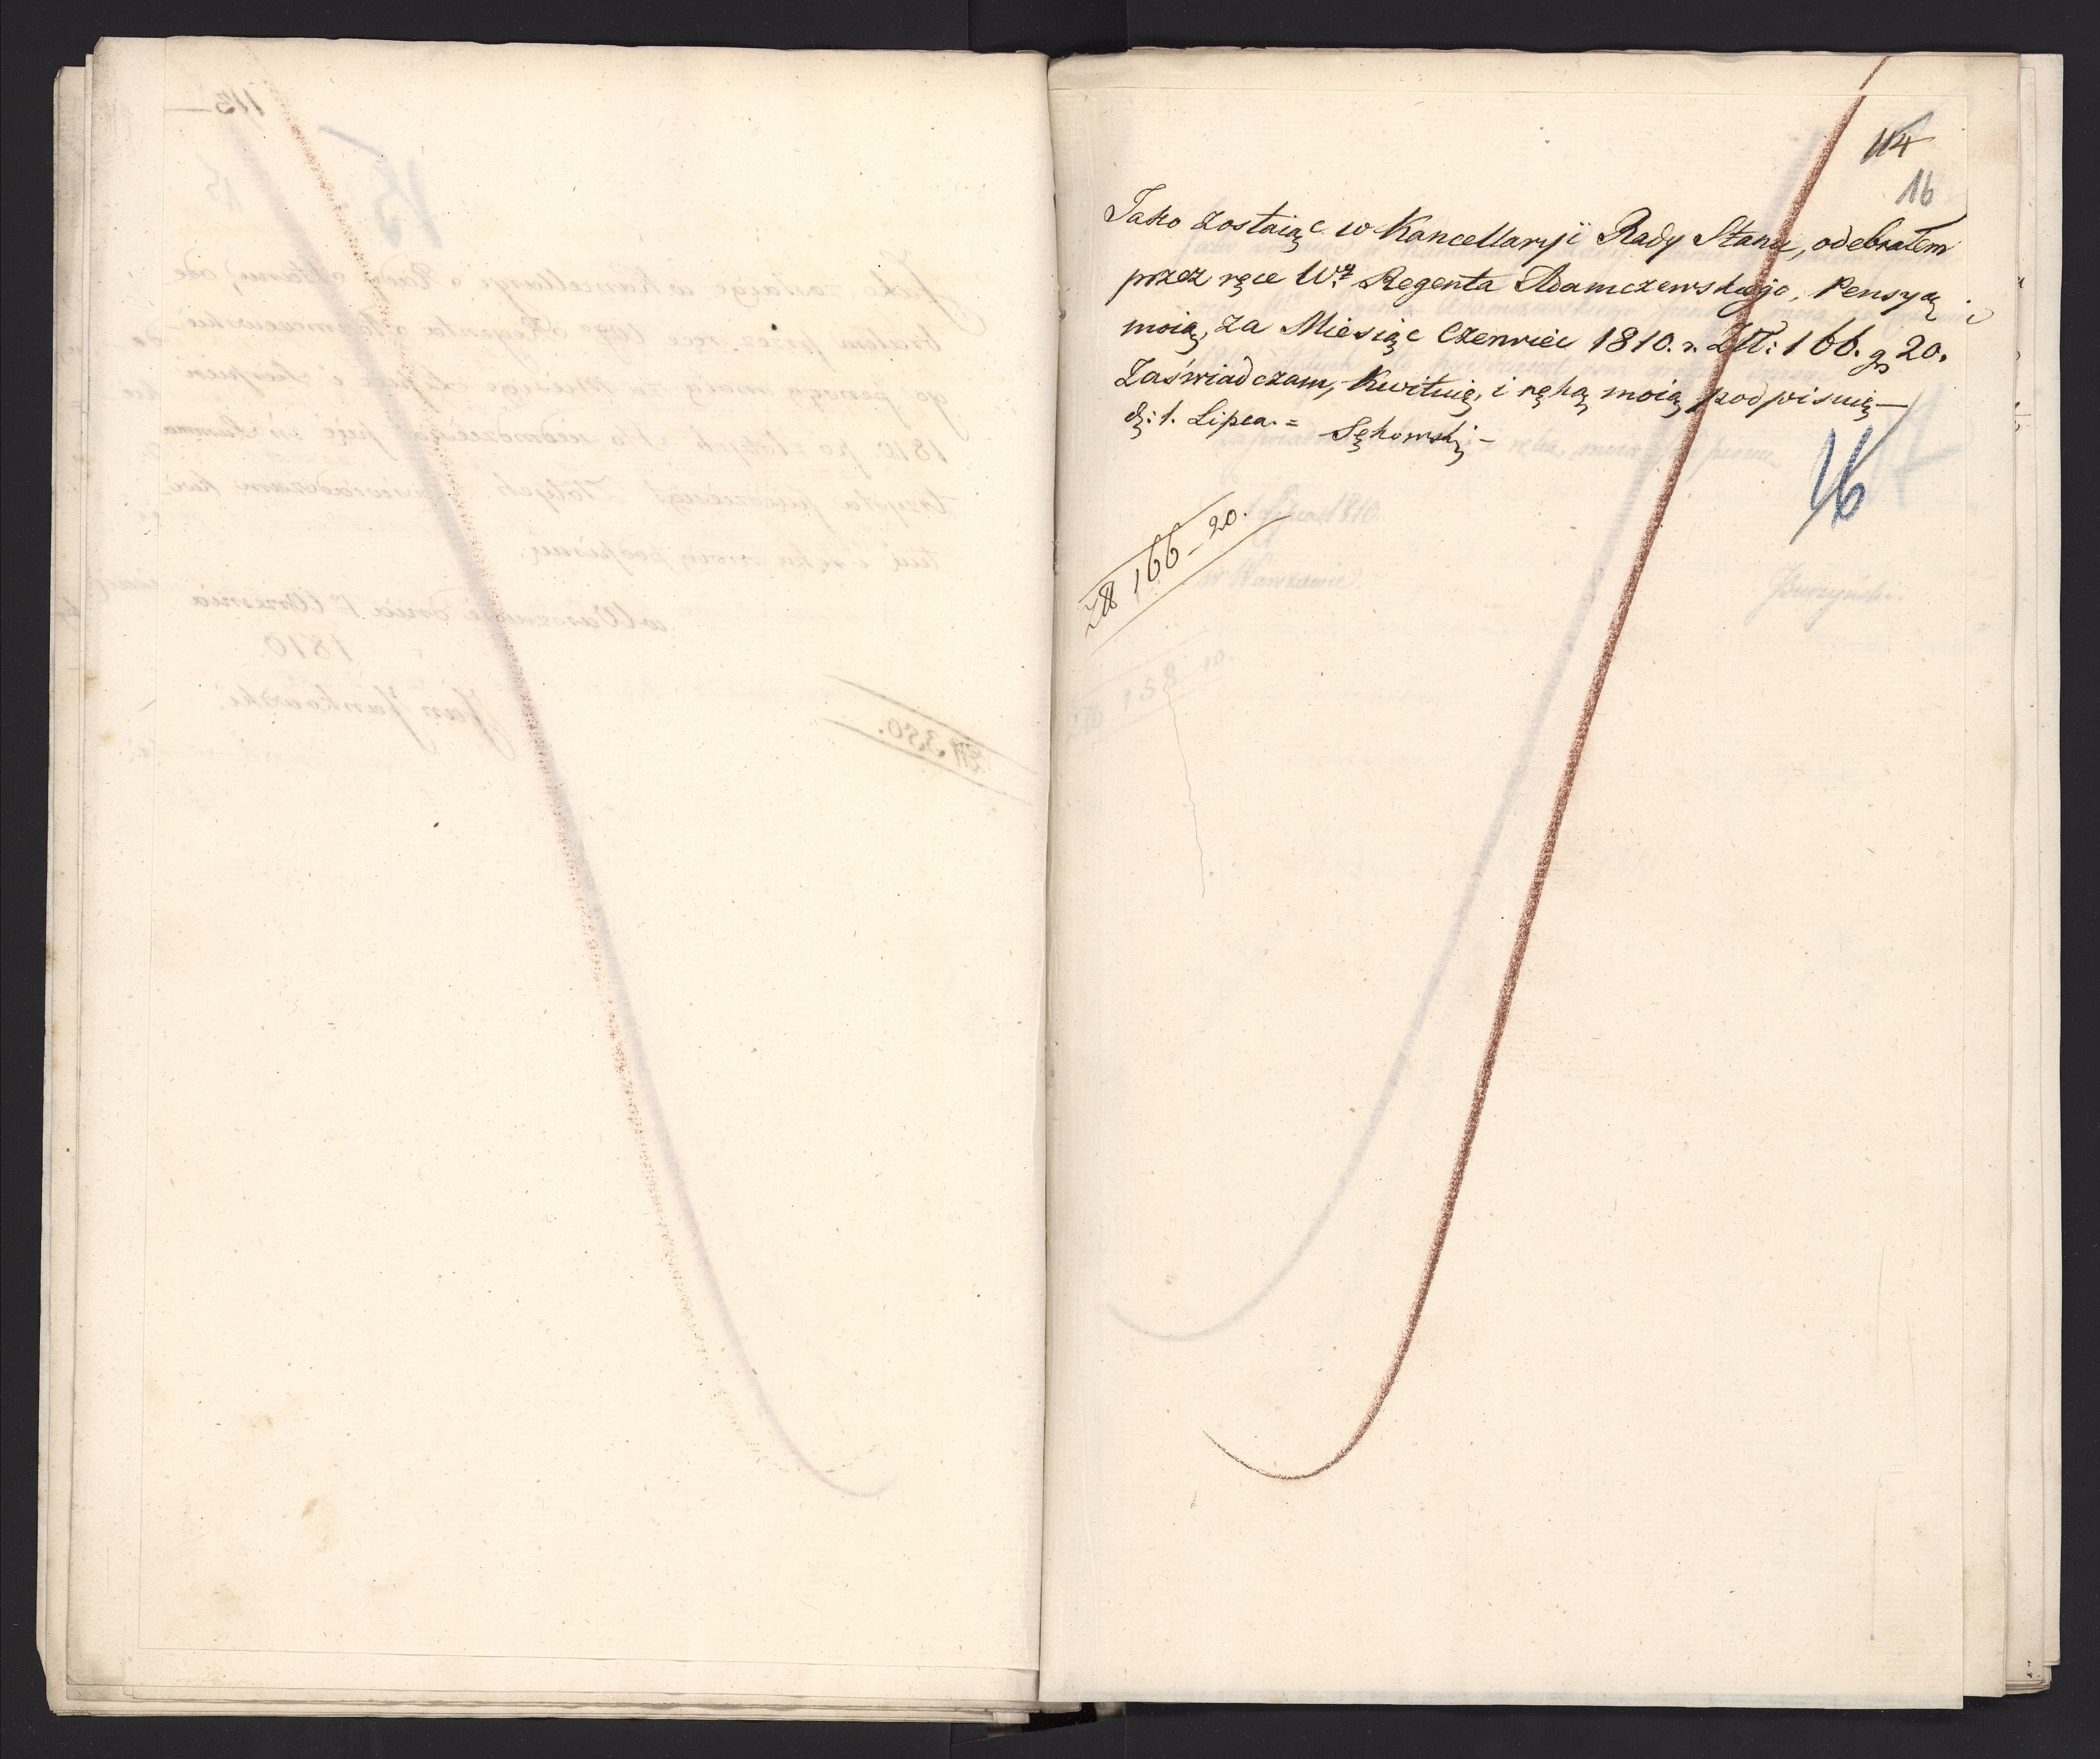 114
16
Jako zostaiąc w Kancellaryi Rady Stanu, odebrałem
przez ręce Wgo Regenta Adamczewskiego, Pensyą
moią, za Miesiąc Czerwiec 1810. r. Złł: 166. gr 20.
Zaświadczam, Kwituię, i ręką moią podpisuię —
d: 1. Lipca. = Sękowski —
16
Złł 166 – 20.